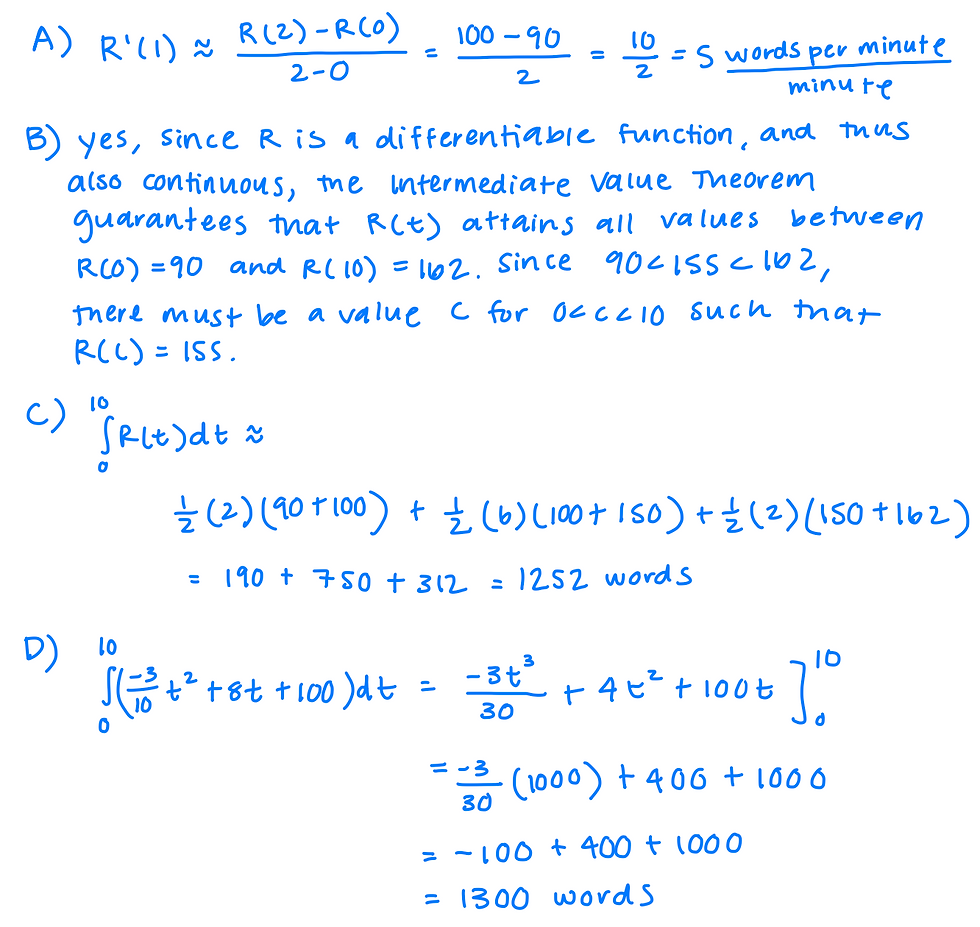 A) R'(1) ≈ (R(2) - R(0))/(2-0) = (100 - 90)/2 = 10/2 = 5 words per minute/minute
B) yes, since R is a differentiable function, and thus
also continuous, the Intermediate Value Theorem
guarantees that R(t) attains all values between
R(0) = 90 and R(10) = 162. Since 90<155<162,
there must be a value C for 0<c<10 such that
R(c) = 155.
C) ∫₀¹⁰ R(t)dt ≈
1/2 (2)(90+100) + 1/2 (6)(100+150) + 1/2 (2)(150+162)
= 190 + 750 + 312 = 1252 words
D) ∫₀¹⁰ (-3/10 t² + 8t + 100)dt = -3t³/30 + 4t² + 100t ]₀¹⁰
= -3/30 (1000) + 400 + 1000
= -100 + 400 + 1000
= 1300 words